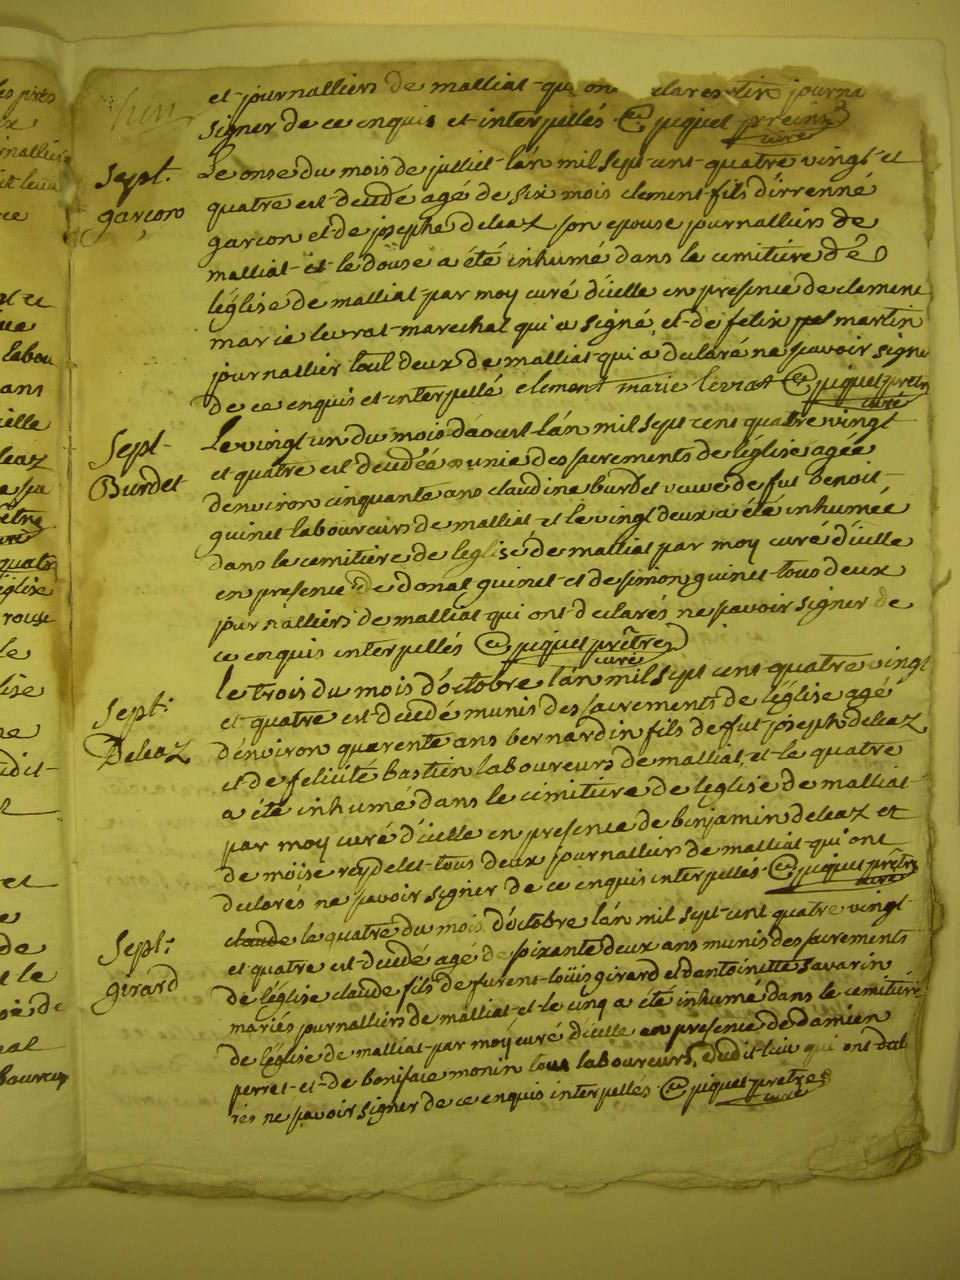 et journalliers de malliat qu on clares journa
signer de ce enquis et interpellés @ piquet
curé
Sept.
garçon
Le onse du mois de julliet l'an mil sept cent quatre vingt et
quatre est decédé agé de six mois clement fils d'irrenné
garcon et de josephe deleaz son epouse journalliers de
malliat et le douse a été inhumé dans le cemitiere dé
l'église de malliat par moy curé d'icelle en presence de clement
marie levrat marechal qui a signé et de felix martin
journallier tout deux de malliat qui a declaré ne savoir signe
de ce enquis et interpellé clement marie levrat @ piquet prêtre
curé
Sept
Burdet
Le vingt un du mois d'aoust l'an mil sept cent quatre vingt
et quatre est decedée munie des sacrements de l'église agée
d'environ cinquante ans claudine burdet veuve de fut benoit
guinet laboureurs de malliat et le vingt deux a été inhumée
dans la cemitiere de l'eglise de malliat par moy curé d'icelle
en presence de donat guinet et de simon guinet tous deux
journalliers de malliat qui ont declarés ne savoir signer de
ce enquis interpellés @ piquet prêtre
curé
Sept:
Deleaz
le trois du mois d'octobre l'an mil sept cent quatre vingt
et quatre est decédé munis des sacrements de l'église agé
d'environ quarente ans bernardin fils de fut joseph deleaz
et de felicité bastien laboureurs de malliat, et le quatre
a été inhumé dans le cimitiere de l'eglise de malliat
par moy curé d'icelle en presence de benjamin deleaz et
de moise roydelet tous deux journalliers de malliat qui ont
declarés ne savoir signer de ce enquis interpellés @ piquet prêtre
curé
Sept:
girard
claude le quatre du mois d'octobre l'an mil sept cent quatre vingt
et quatre est decédé agé de soixante deux ans munis des sacrements
de l'église claude fils de furent loüis girard et d'antoinette savarin
mariés journalliers de malliat et le cinq a été inhumé dans le cemitiere
de l'église de malliat par moy curé d'icelle en presence de damien
perret et de boniface monin tous laboureurs dudit lieu qui ont decla
rés ne savoir signer de ce enquis interpellés @ piquet prêtre
curé